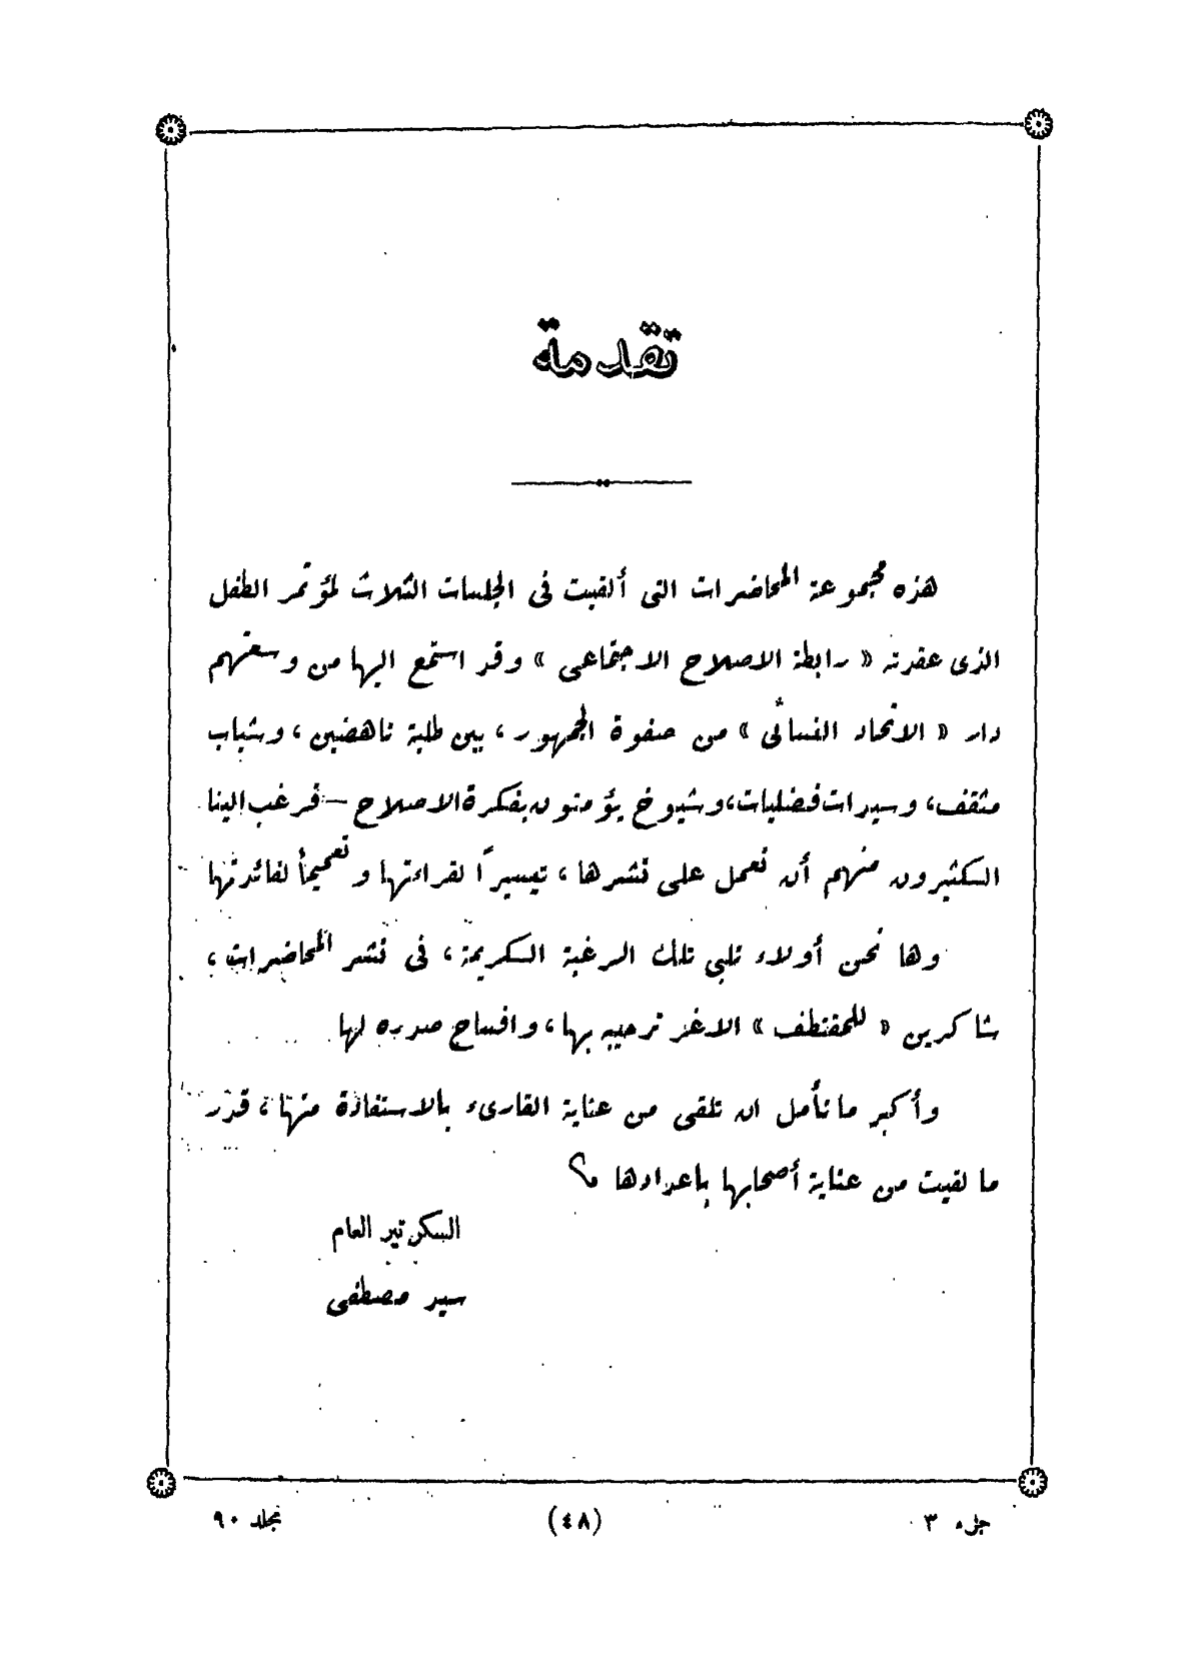 تقدمة
هذه مجموعة المحاضرات التى ألقيت فى الجلسات الثلاث لمؤتمر الطفل
الذى عقدته « رابطة الاصلاح الاجتماعى » وقد استمع اليها من وسعتهم
دار « الاتحاد النسائى » من صفوة الجمهور، بين طلبة ناهضين، وشباب
مثقف، وسيدات فضليات، وشيوخ يؤمنون بفكرة الاصلاح — فرغب الينا
الكثيرون منهم أن نعمل على نشرها، تيسيراً لقراءتها وتعميماً لفائدتها
وها نحن أولاء نلبى تلك الرغبة الكريمة، فى نشر المحاضرات،
شاكرين « للمقتطف » الاغر ترحيبه بها، وافساح صدره لها
وأكبر ما نأمل ان تلقى من عناية القارىء بالاستفادة منها، قدر
ما لقيت من عناية أصحابها باعدادها
السكرتير العام
سيد مصطفى
جزء ٣ (٤٨) مجلد ٩٠